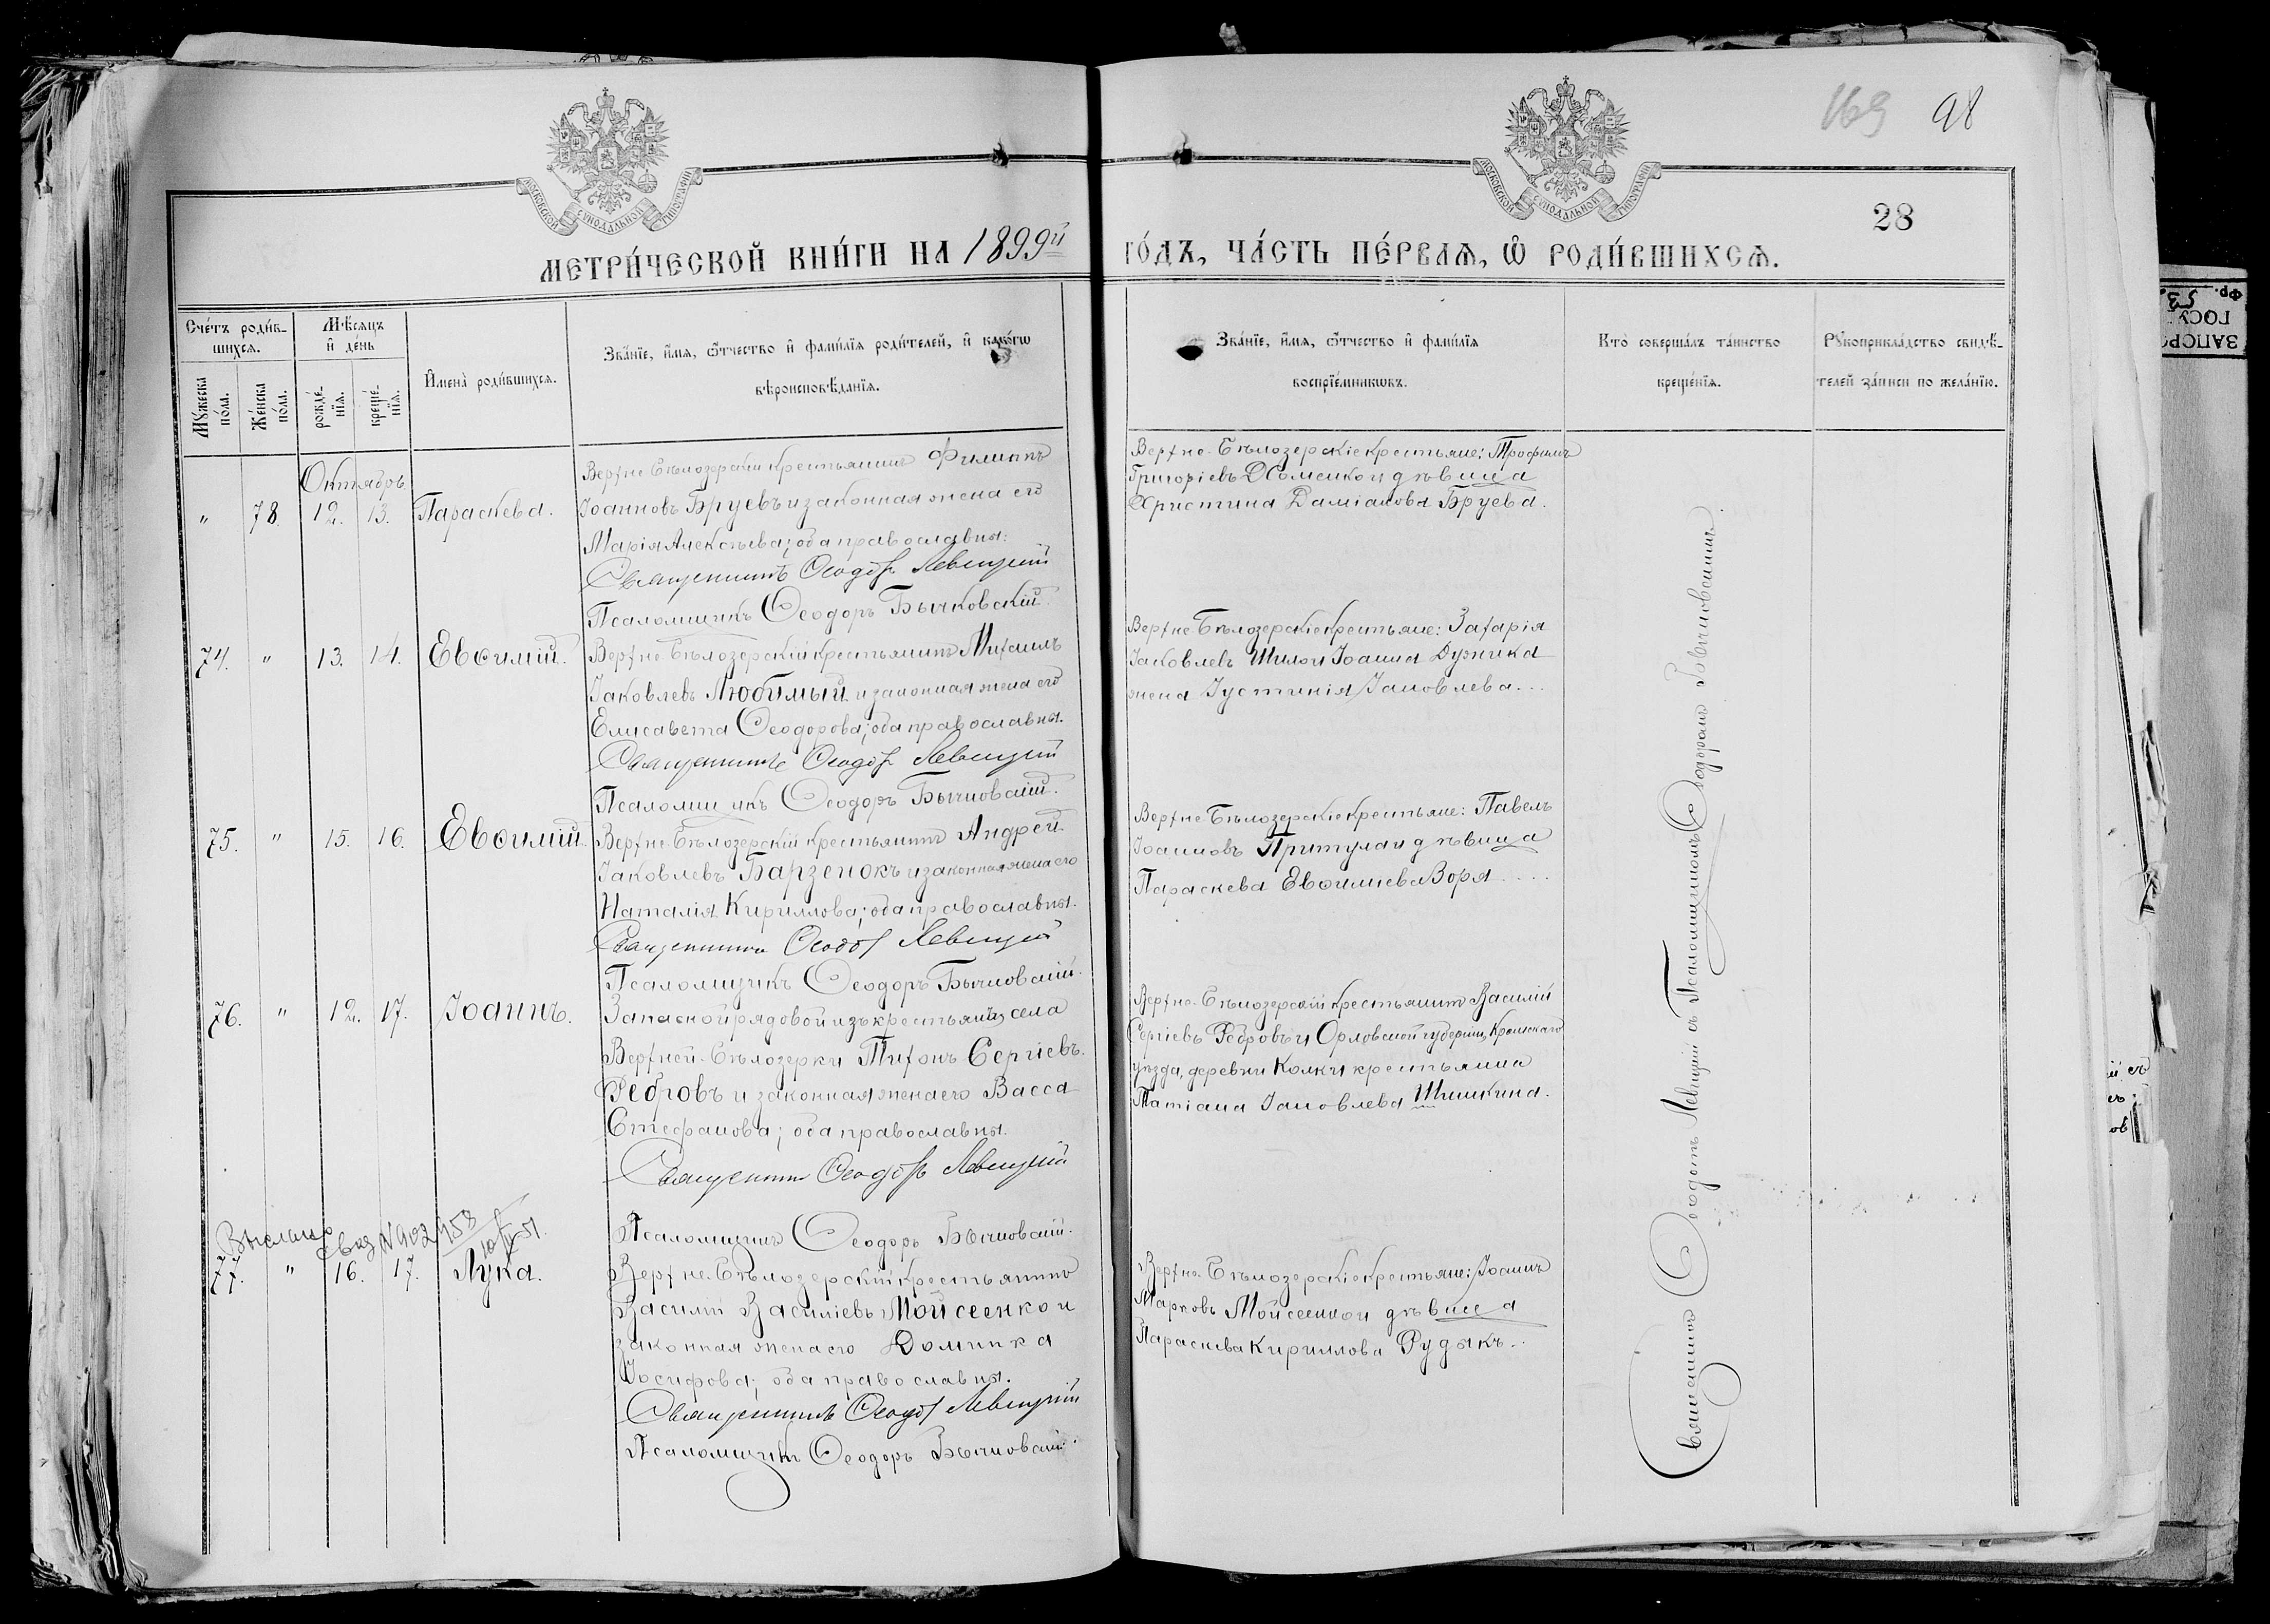 169 98
МОСКОВСКОЙ СѴНОДАЛЬНОЙ ТИПОГРАФІИ
МОСКОВСКОЙ СѴНОДАЛЬНОЙ ТИПОГРАФІИ
28
МЕТРИ́ЧЕСКОЙ КНИ́ГИ НА 1899й ГО́ДЪ, ЧА́СТЬ ПЕ́РВАѦ, Ѡ РОДИ́ВШИХСѦ.
Сче́тъ роди́в-
шихсѧ.
Мꙋ́жеска по́ла.
Же́нска по́ла.
Мѣ́сѧцъ
и де́нь
рожде́-
нїѧ.
креще́-
нїѧ.
Имена̀ роди́вшихсѧ.
Зва́нїе, и́мѧ, ѻ́тчество и фами́лїѧ роди́телей, и како́гѡ
вѣроисповѣ́данїѧ.
Зва́нїе, и́мѧ, ѻ́тчество и фами́лїѧ
воспрїе́мникѡвъ.
Кто̀ соверша́лъ та́инство
креще́нїѧ.
Рꙋкоприкла́дство свидѣ́-
телей за́писи по жела́нїю.
Октябрь
" 78. 12. 13. Параскева.
Верхне-Бѣлозерскій крестьянинъ Филиппъ
Іоанновъ Бруевъ и законная жена его
Марія Алексѣева; оба православны.
Священникъ Ѳеодоръ Левицкій
Псаломщикъ Ѳеодоръ Бычковскій.
Верхне-Бѣлозерскіе крестьяне: Трофимъ
Григоріевъ Хоменко и дѣвица
Христина Даміанова Бруева.
74. " 13. 14. Евѳимій.
Верхне-Бѣлозерскій крестьянинъ Михаилъ
Іаковлевъ Любимый и законная жена его
Елисавета Ѳеодорова; оба православны.
Священникъ Ѳеодоръ Левицкій
Псаломщикъ Ѳеодоръ Бычковскій.
Верхне-Бѣлозерскіе крестьяне: Захарія
Іаковлевъ Шило и Іоанна Дужика
жена Іустинія Іаковлева...
75. " 15. 16. Евѳимій.
Верхне-Бѣлозерскій крестьянинъ Андрей
Іаковлевъ Барзенокъ и законная жена его
Наталія Кириллова; оба православны.
Священникъ Ѳеодоръ Левицкій
Псаломщикъ Ѳеодоръ Бычковскій.
Верхне-Бѣлозерскіе крестьяне: Павелъ
Іоанновъ Притула и дѣвица
Параскева Евѳиміева Воря....
76. " 12. 17. Іоаннъ.
Запасной рядовой изъ крестьянъ села
Верхней-Бѣлозерки Тихонъ Сергіевъ
Ребровъ и законная жена его Васса
Стефанова; оба православны.
Священникъ Ѳеодоръ Левицкій
Псаломщикъ Ѳеодоръ Бычковскій.
Верхне-Бѣлозерскій крестьянинъ Василій
Сергіевъ Ребровъ и Орловской губерніи, Кромскаго
уѣзда, деревни Колки крестьянка
Татіана Іаковлева Шишкина.
Выслано
77. " 16. 17. Лука.
Верхне-Бѣлозерскій крестьянинъ
Василій Василіевъ Мойсеенко и
законная жена его Домника
Іосифова; оба православны.
Священникъ Ѳеодоръ Левицкій
Псаломщикъ Ѳеодоръ Бычковскій.
Верхне-Бѣлозерскіе крестьяне: Іоаннъ
Марковъ Мойсеенко и дѣвица
Параскева Кириллова Рудякъ...
Священникъ Ѳеодотъ Левицкій съ Псаломщикомъ Ѳеодоромъ Бычковскимъ.